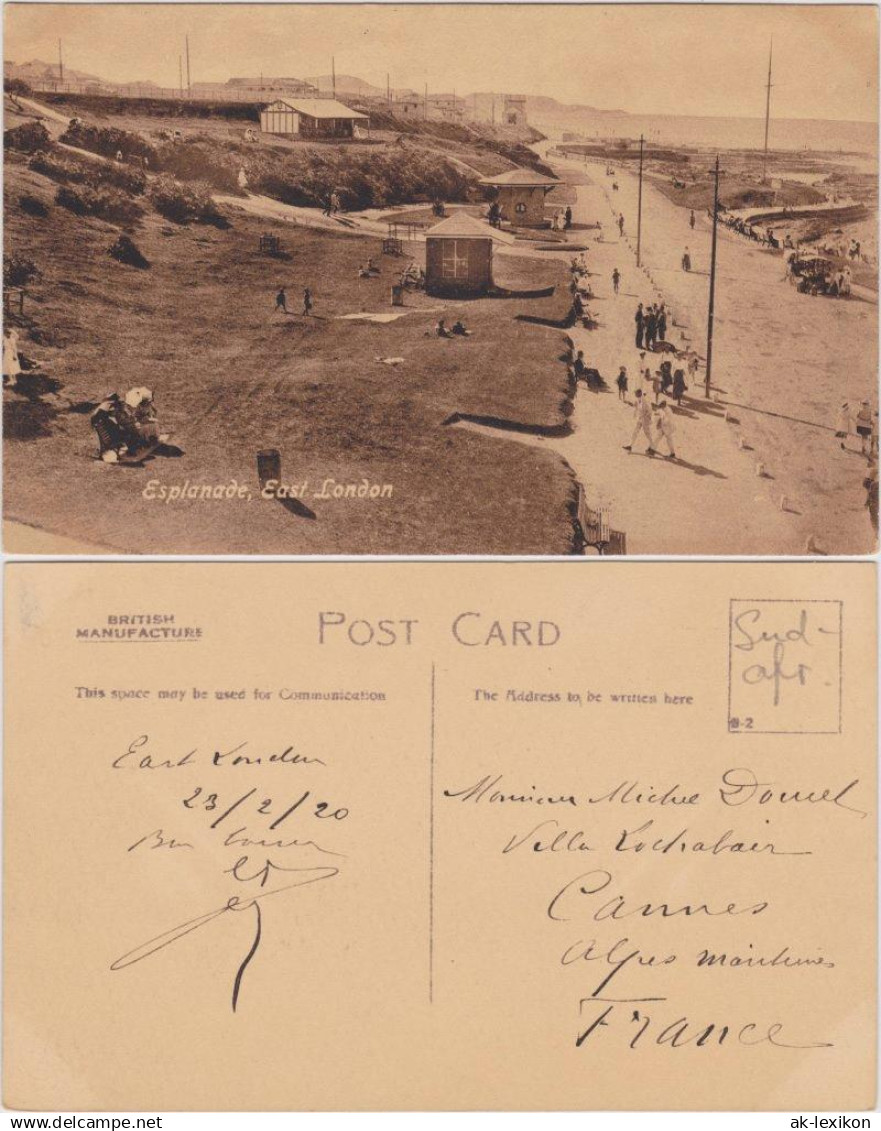 Esplanade, East London
BRITISH
MANUFACTURE
POST CARD
This space may be used for Communication
The Address to be written here
Sud-
afr.
B-2
East London
23/2/20
Bon
Monsieur Michel Doucet
Villa Lochabair
Cannes
Alpes maritimes
France
ak-lexikon